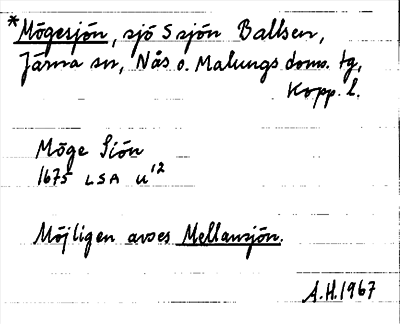 *Mögesjön, sjö S sjön Ballsen,
Järna sn, Nås o. Malungs doms. tg,
Kopp. l.
Möge Siön
1675 LSA U12
Möjligen avses Mellansjön.
A.H. 1967